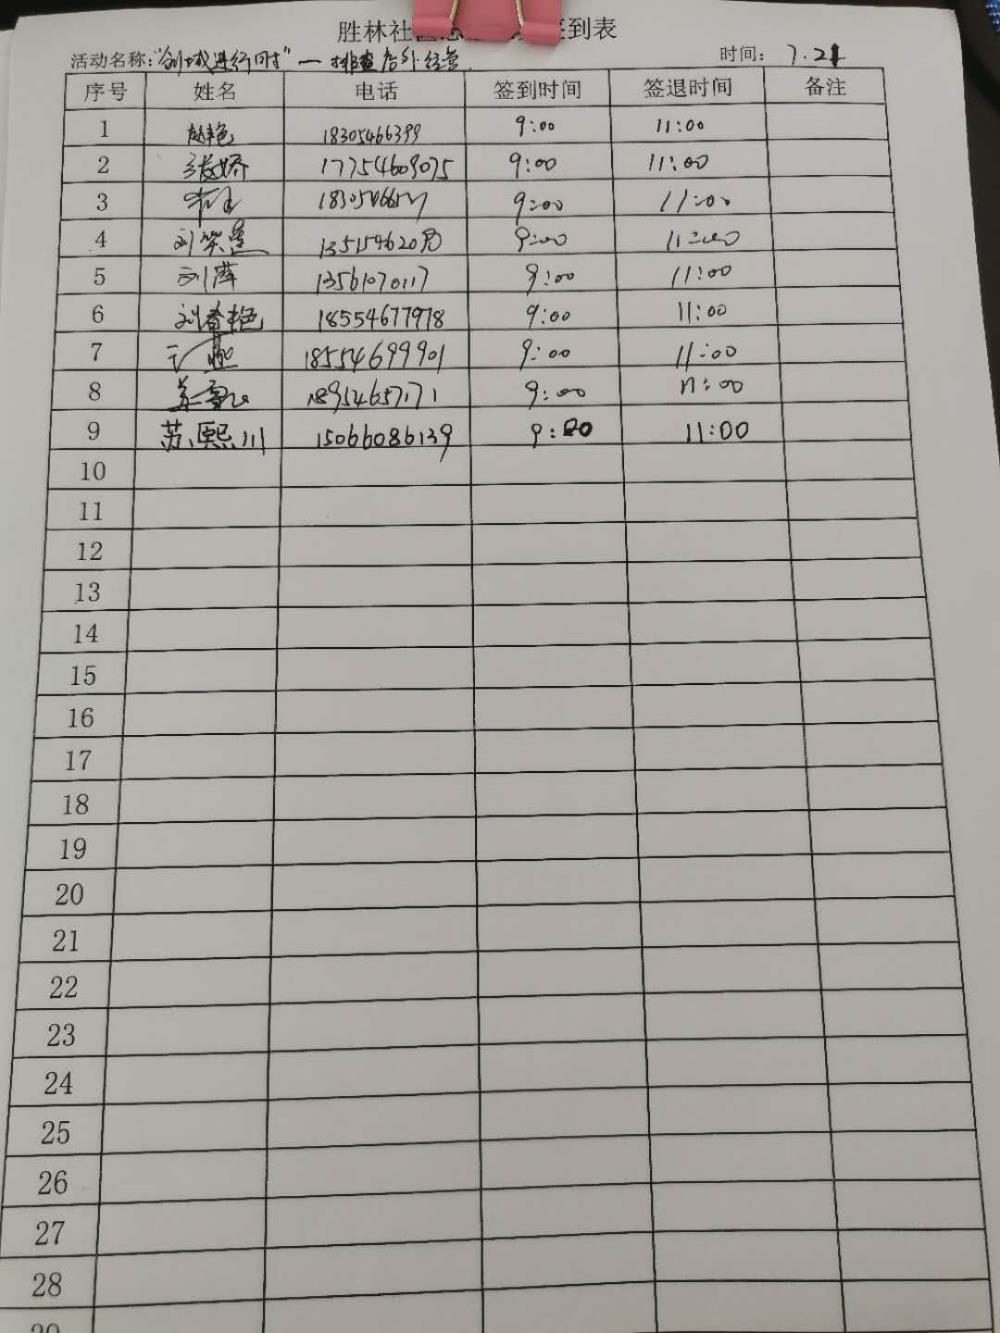 胜林社 签到表
活动名称:"创城进行时"一排查店外经营 时间: 7.21
序号 姓名 电话 签到时间 签退时间 备注
1 18305466399 9:00 11:00
2 张娇 17754609075 9:00 11:00
3 9:00 11:00
4 刘笑 9:00 11:00
5 刘萍 13561070117 9:00 11:00
6 刘春艳 18554677978 9:00 11:00
7 18554699901 9:00 11:00
8 18954657171 9:00 11:00
9 苏熙川 15066086139 9:00 11:00
10
11
12
13
14
15
16
17
18
19
20
21
22
23
24
25
26
27
28
29